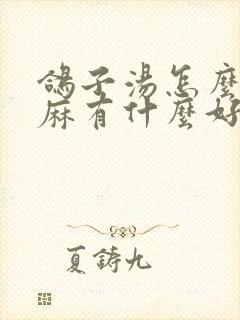 鴿子湯怎麼
麻有什麼好
夏鑄九